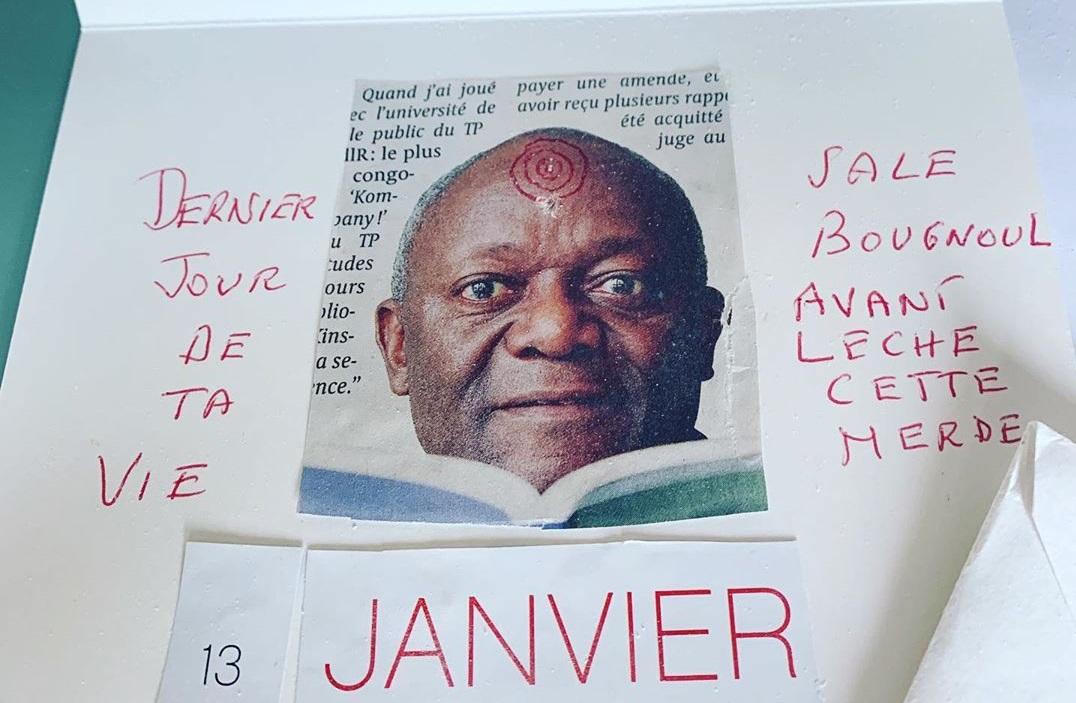 Quand j'ai joué
ec l'université de
le public du TP
IIR: le plus
congo-
'Kom-
pany!'
u TP
tudes
ours
blio-
Kins-
a se-
nce."
payer une amende, et
avoir reçu plusieurs rapp
été acquitté
juge au
DERNIER
JOUR
DE
TA
VIE
SALE
BOUGNOUL
AVANT
LECHE
CETTE
MERDE
13
JANVIER